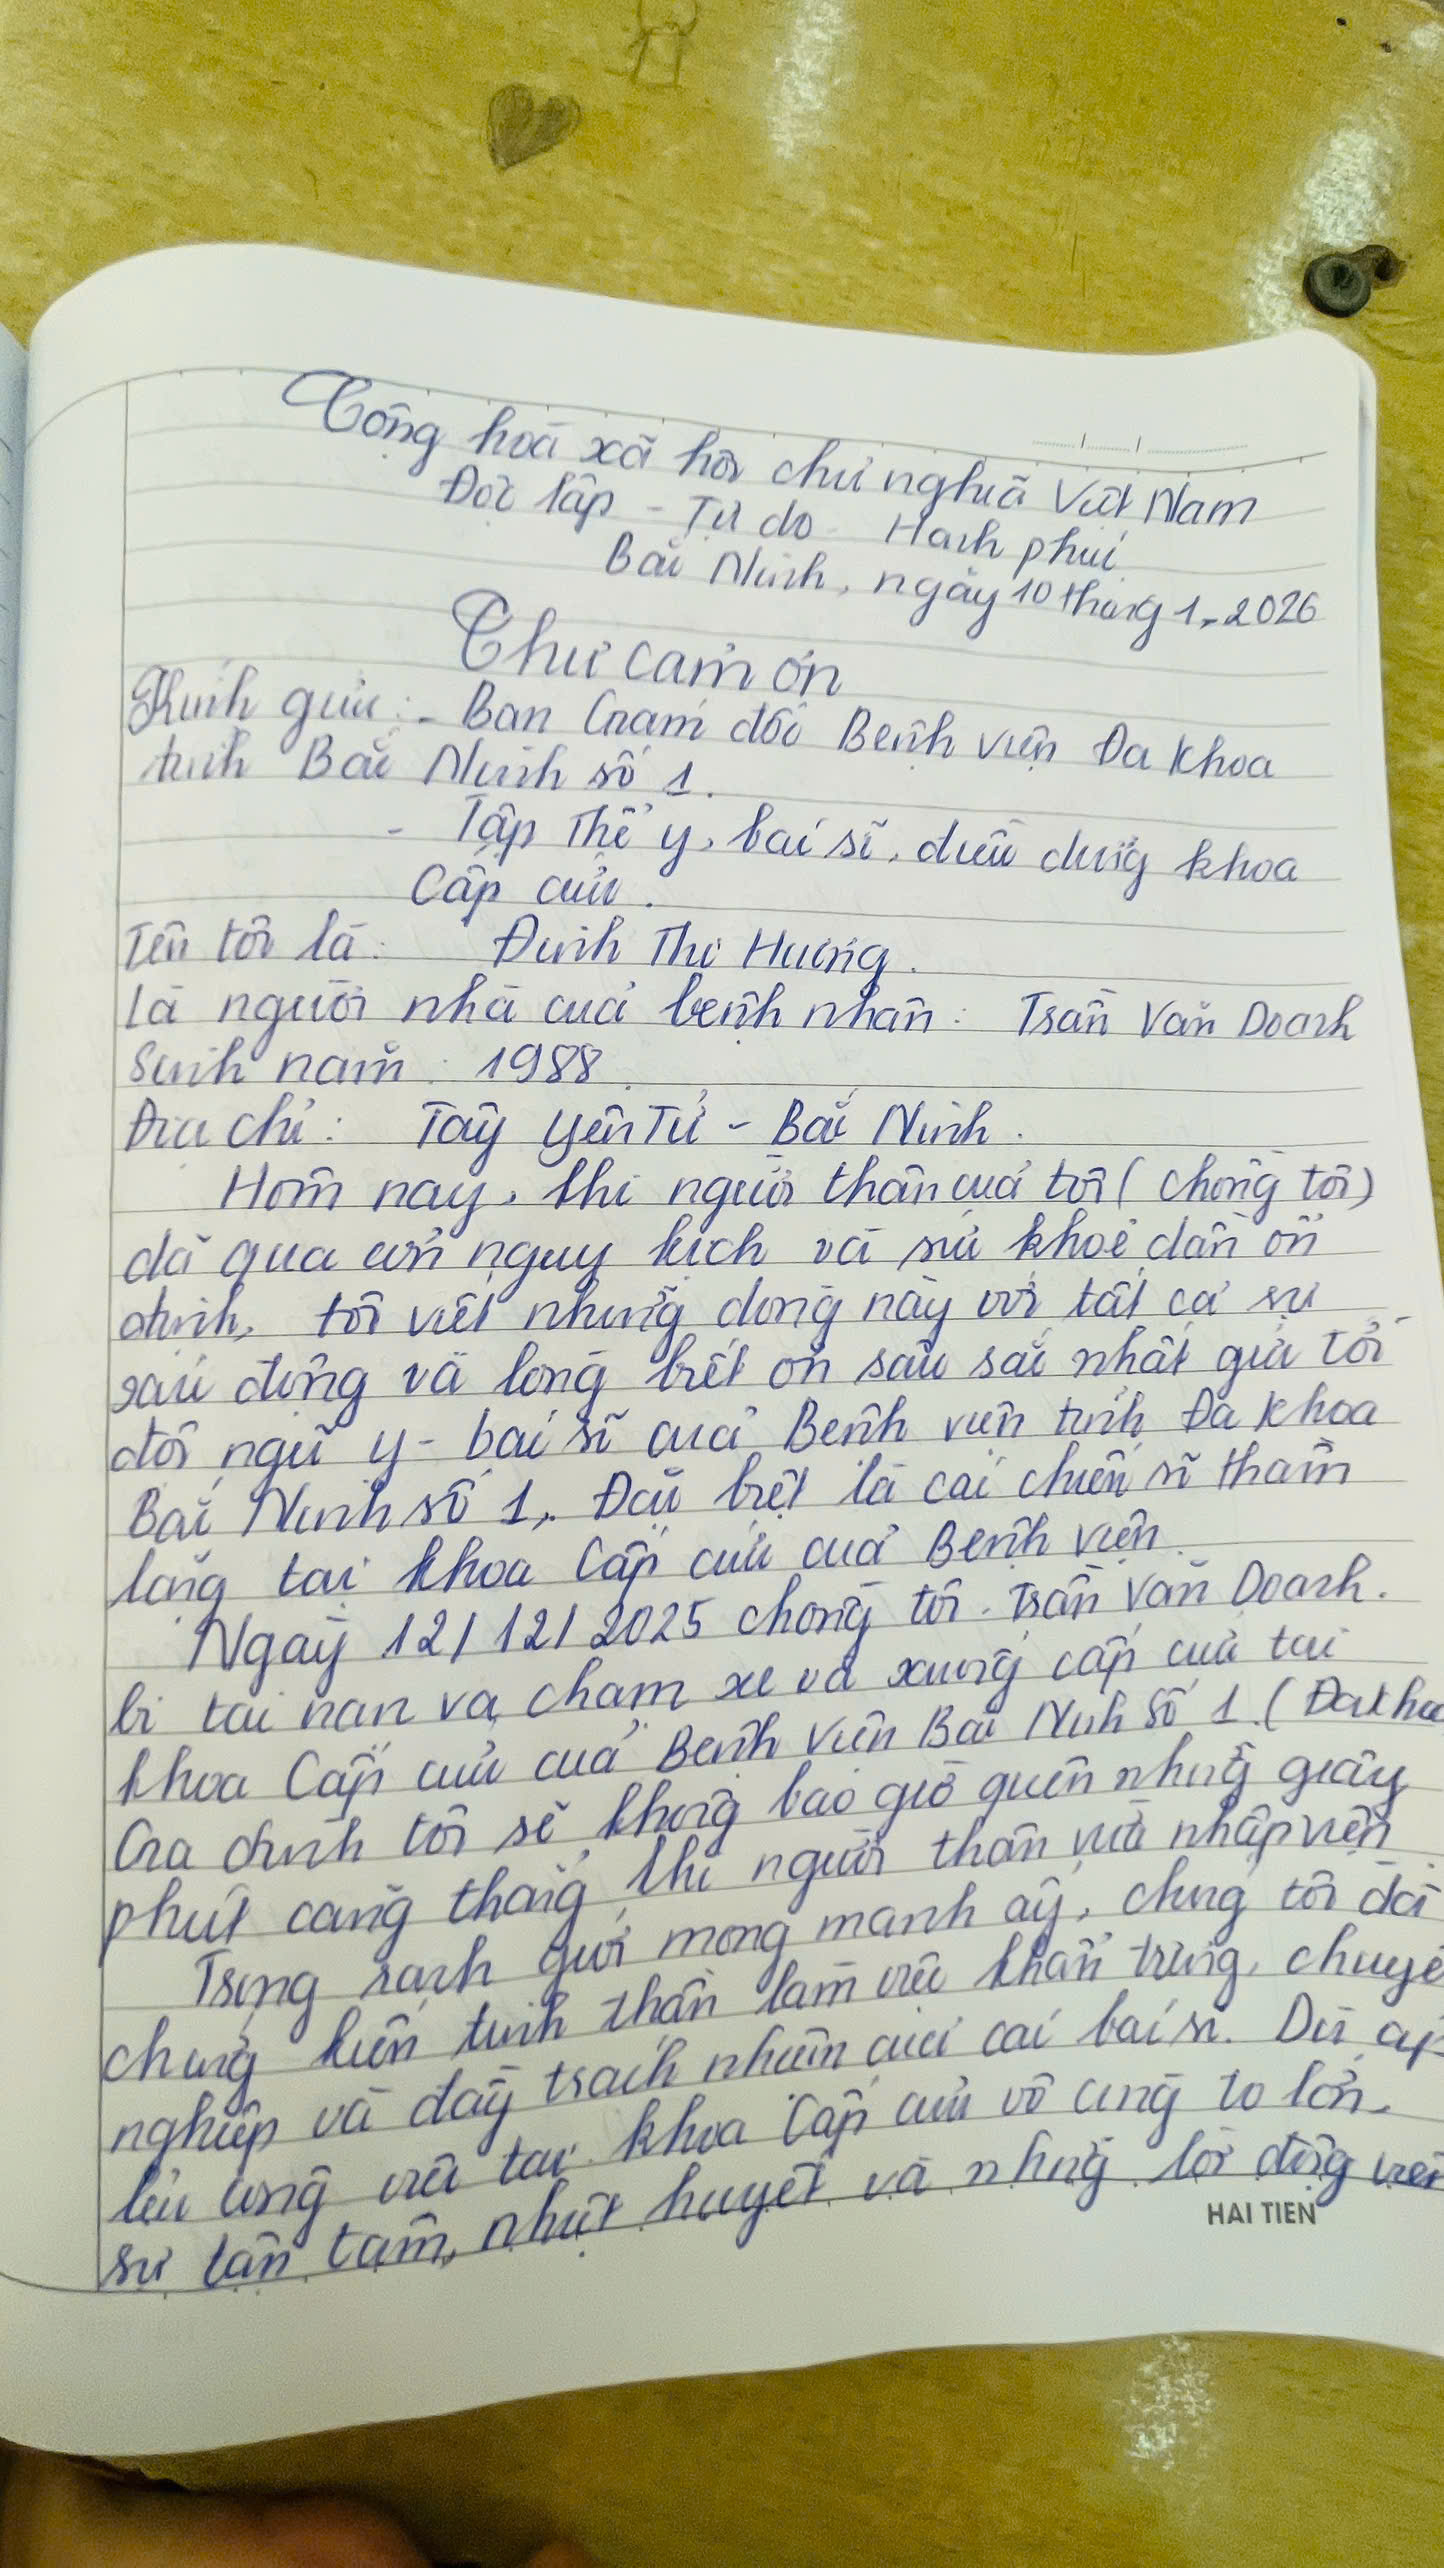 Cộng hoà xã hội chủ nghĩa Việt Nam
Độc lập - Tự do - Hạnh phúc
Bắc Ninh, ngày 10 tháng 1, 2026
Thư cảm ơn
Kính gửi: - Ban Giám đốc Bệnh viện Đa khoa
tỉnh Bắc Ninh số 1.
- Tập thể y, bác sĩ, điều dưỡng khoa
Cấp cứu.
Tên tôi là: Đinh Thị Hương.
Là người nhà của bệnh nhân: Trần Văn Doanh
Sinh năm: 1988.
Địa chỉ: Tây Yên Tử - Bắc Ninh.
Hôm nay, khi người thân của tôi (chồng tôi)
đã qua cơn nguy kịch và sức khoẻ dần ổn
định, tôi viết những dòng này với tất cả sự
xúc động và lòng biết ơn sâu sắc nhất gửi tới
đội ngũ y - bác sĩ của Bệnh viện tỉnh Đa khoa
Bắc Ninh số 1. Đặc biệt là các chiến sĩ thầm
lặng tại khoa Cấp cứu của Bệnh viện.
Ngày 12/12/2025 chồng tôi. Trần Văn Doanh.
bị tai nạn va chạm xe và xuống cấp cứu tại
khoa Cấp cứu của Bệnh viện Bắc Ninh Số 1. (Đa khoa
Gia đình tôi sẽ không bao giờ quên những giây
phút căng thẳng khi người thân vừa nhập viện.
Trong ranh giới mong manh ấy, chúng tôi đã
chứng kiến tinh thần làm việc khẩn trương, chuyê
nghiệp và đầy trách nhiệm của các bác sĩ. Dù áp
lực công việc tại khoa Cấp cứu vô cùng to lớn.
sự tận tâm, nhiệt huyết và những lời động viên
HAI TIEN